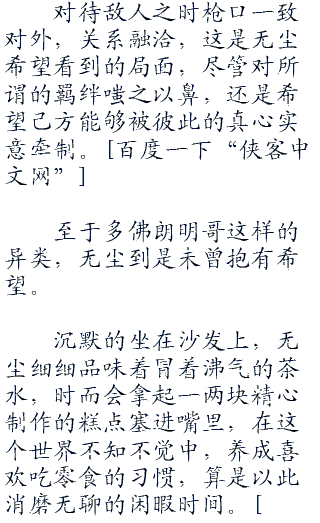 对待敌人之时枪口一致
对外，关系融洽，这是无尘
希望看到的局面，尽管对所
谓的羁绊嗤之以鼻，还是希
望己方能够被彼此的真心实
意牵制。[百度一下“侠客中
文网”]
至于多佛朗明哥这样的
异类，无尘到是未曾抱有希
望。
沉默的坐在沙发上，无
尘细细品味着冒着沸气的茶
水，时而会拿起一两块精心
制作的糕点塞进嘴里，在这
个世界不知不觉中，养成喜
欢吃零食的习惯，算是以此
消磨无聊的闲暇时间。[